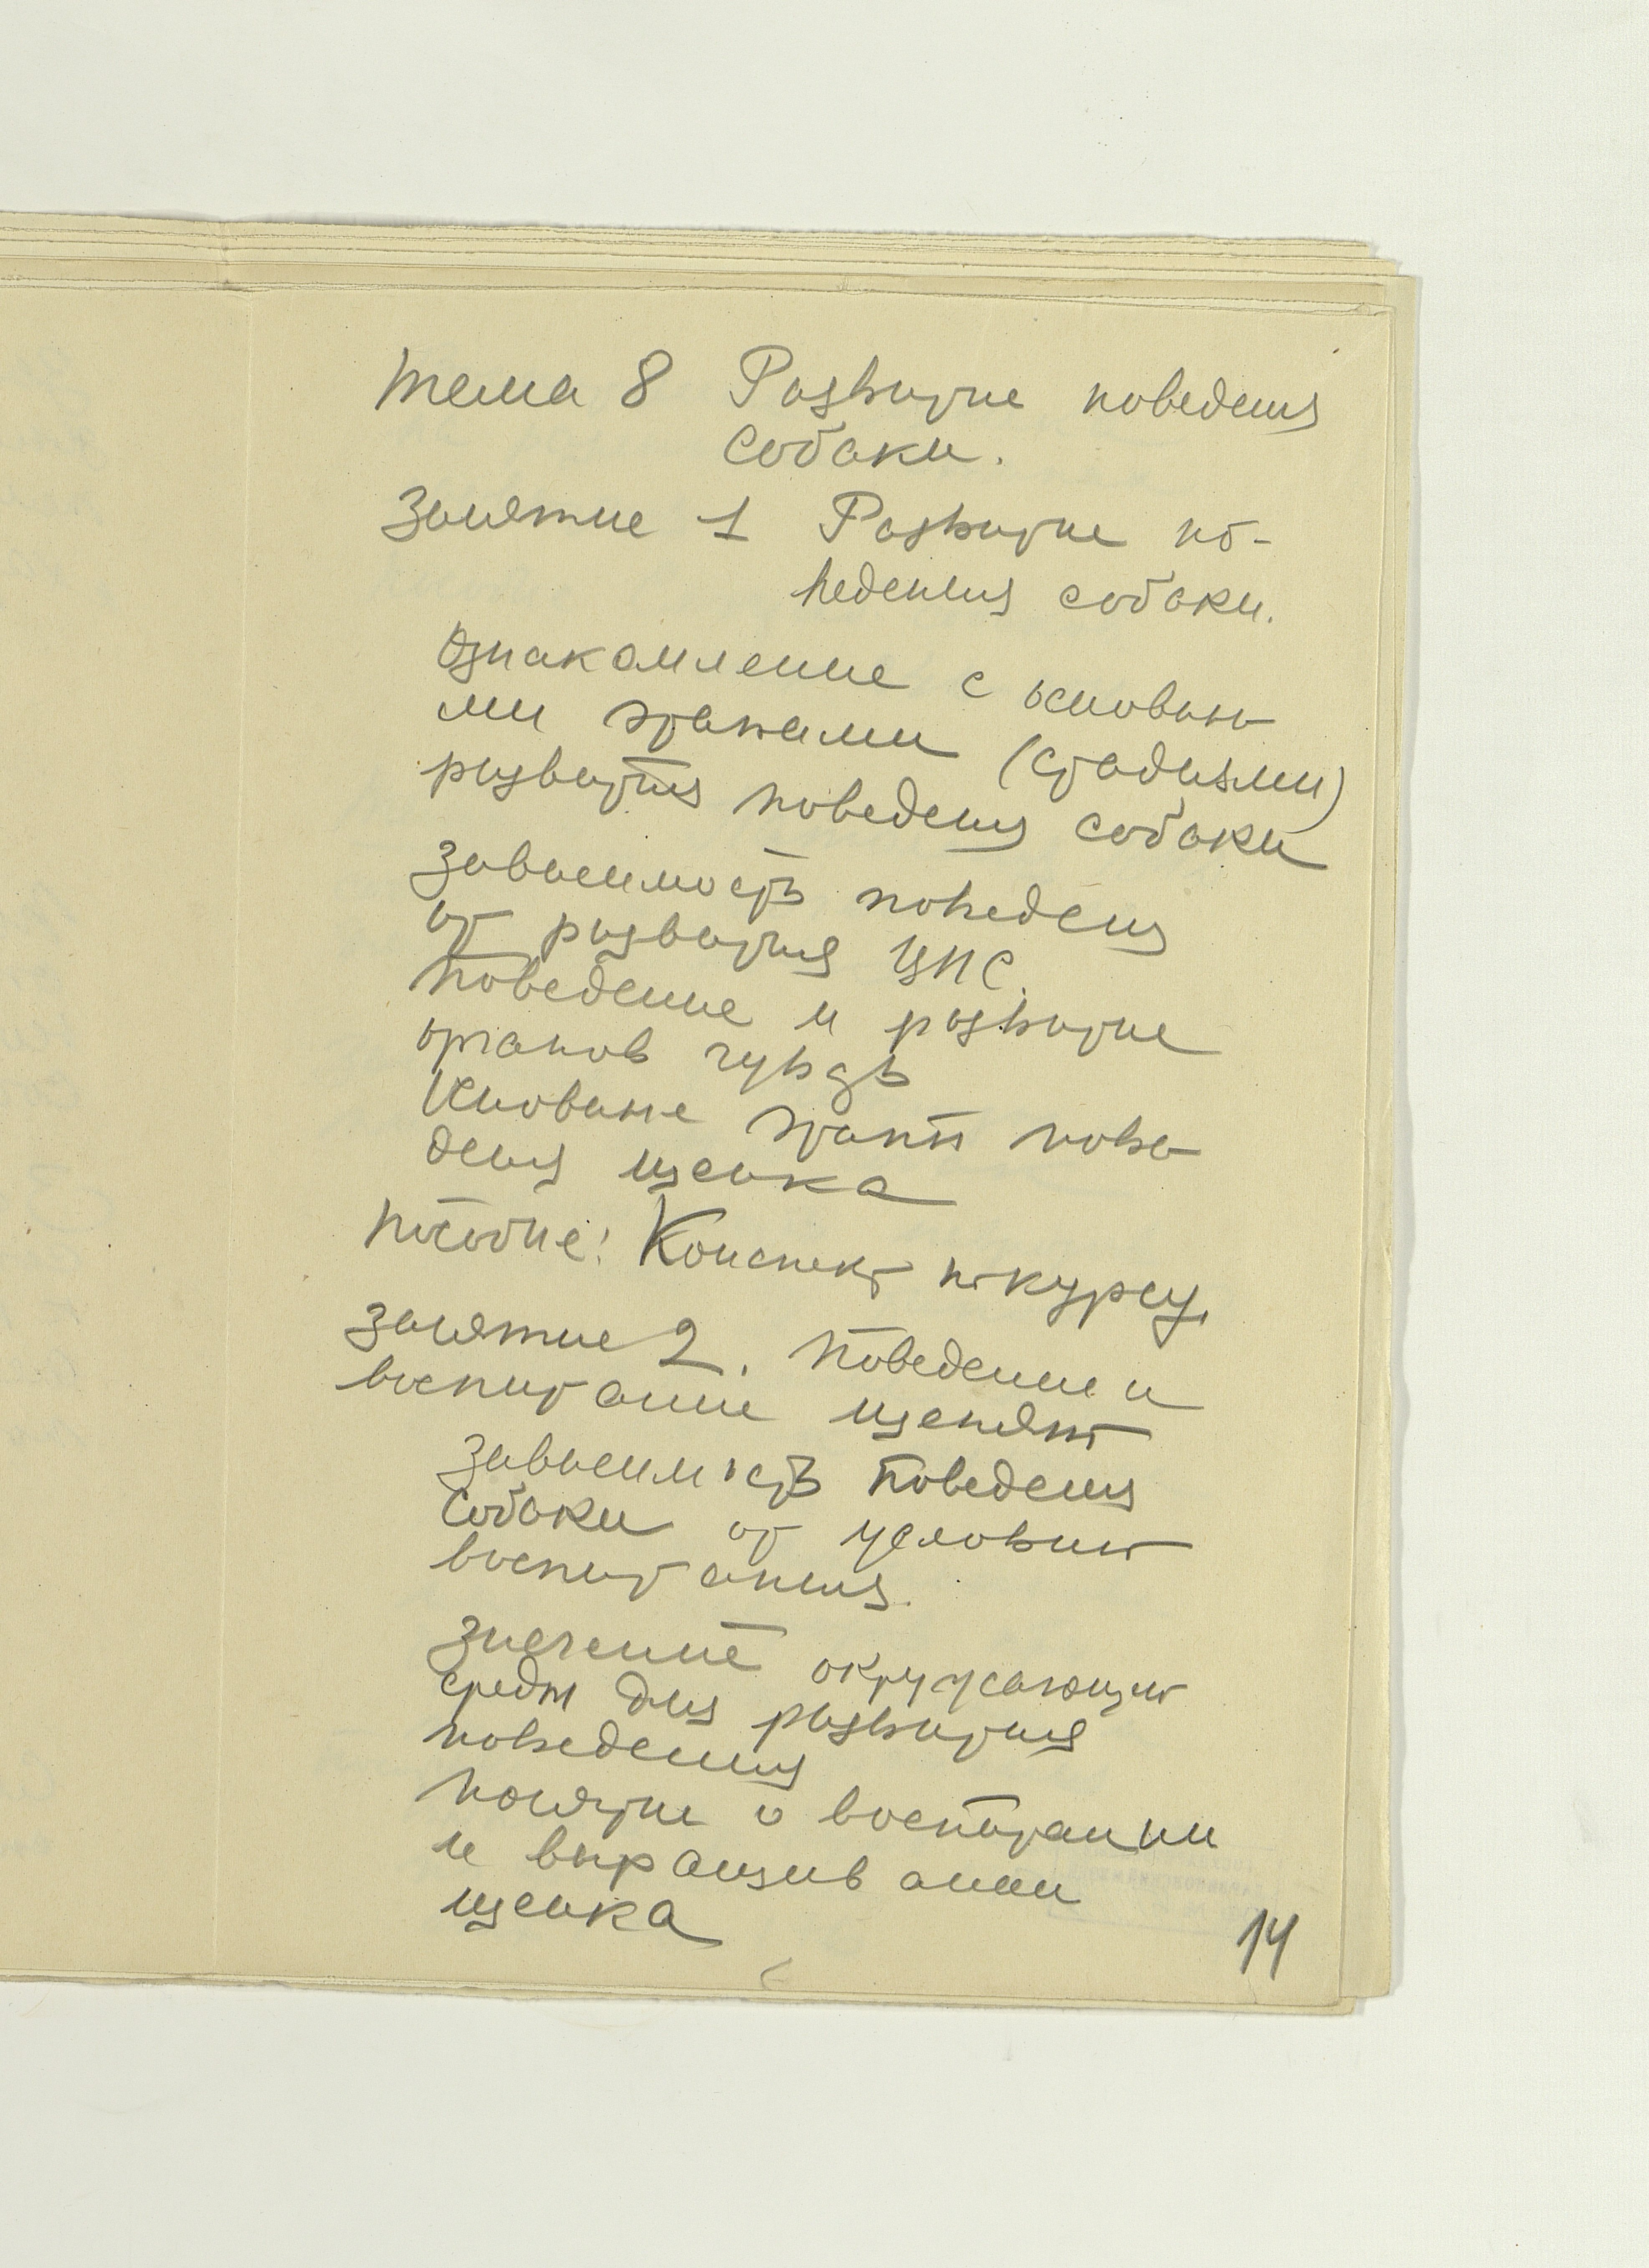 Тема 8 Развитие поведения
собаки.
Занятие 1 Развитие по-
ведения собаки.
Ознакомление с основны-
ми этапами (стадиями)
развития поведения собаки
Зависимость поведения
от развития ЦНС.
Поведение и развитие
органов чувств
Основные этапы пове-
дения щенка
Пособие: Конспект по курсу.
Занятие 2. Поведение и
воспитание щенят
Зависимость поведения
собаки от условий
воспитания.
Значение окружающей
среды для развития
поведения
Понятие о воспитании
и выращивании
щенка
14